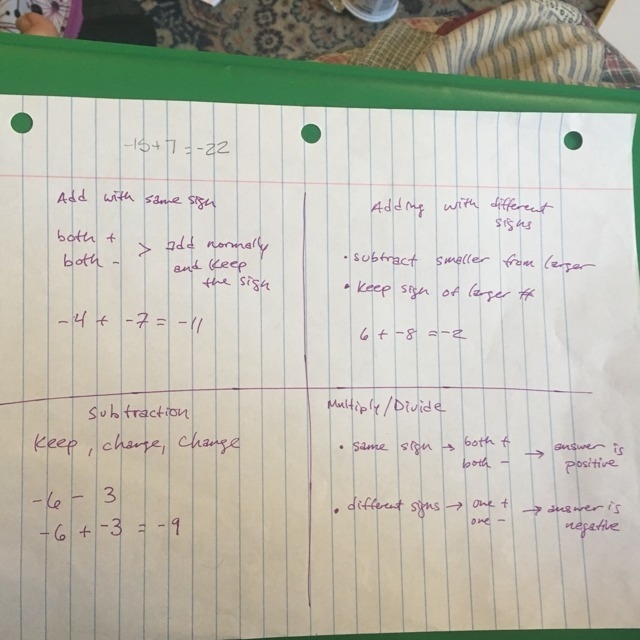 -15+7=-22
Add with same sign
both +
both - > add normally
and keep
the sign
-4 + -7 = -11
Adding with different
signs
• subtract smaller from larger
• keep sign of larger #
6 + -8 = -2
Subtraction
Keep, change, change
-6 - 3
-6 + -3 = -9
Multiply/Divide
• same sign → both + → answer is
both - positive
• different signs → one + → answer is
one - negative